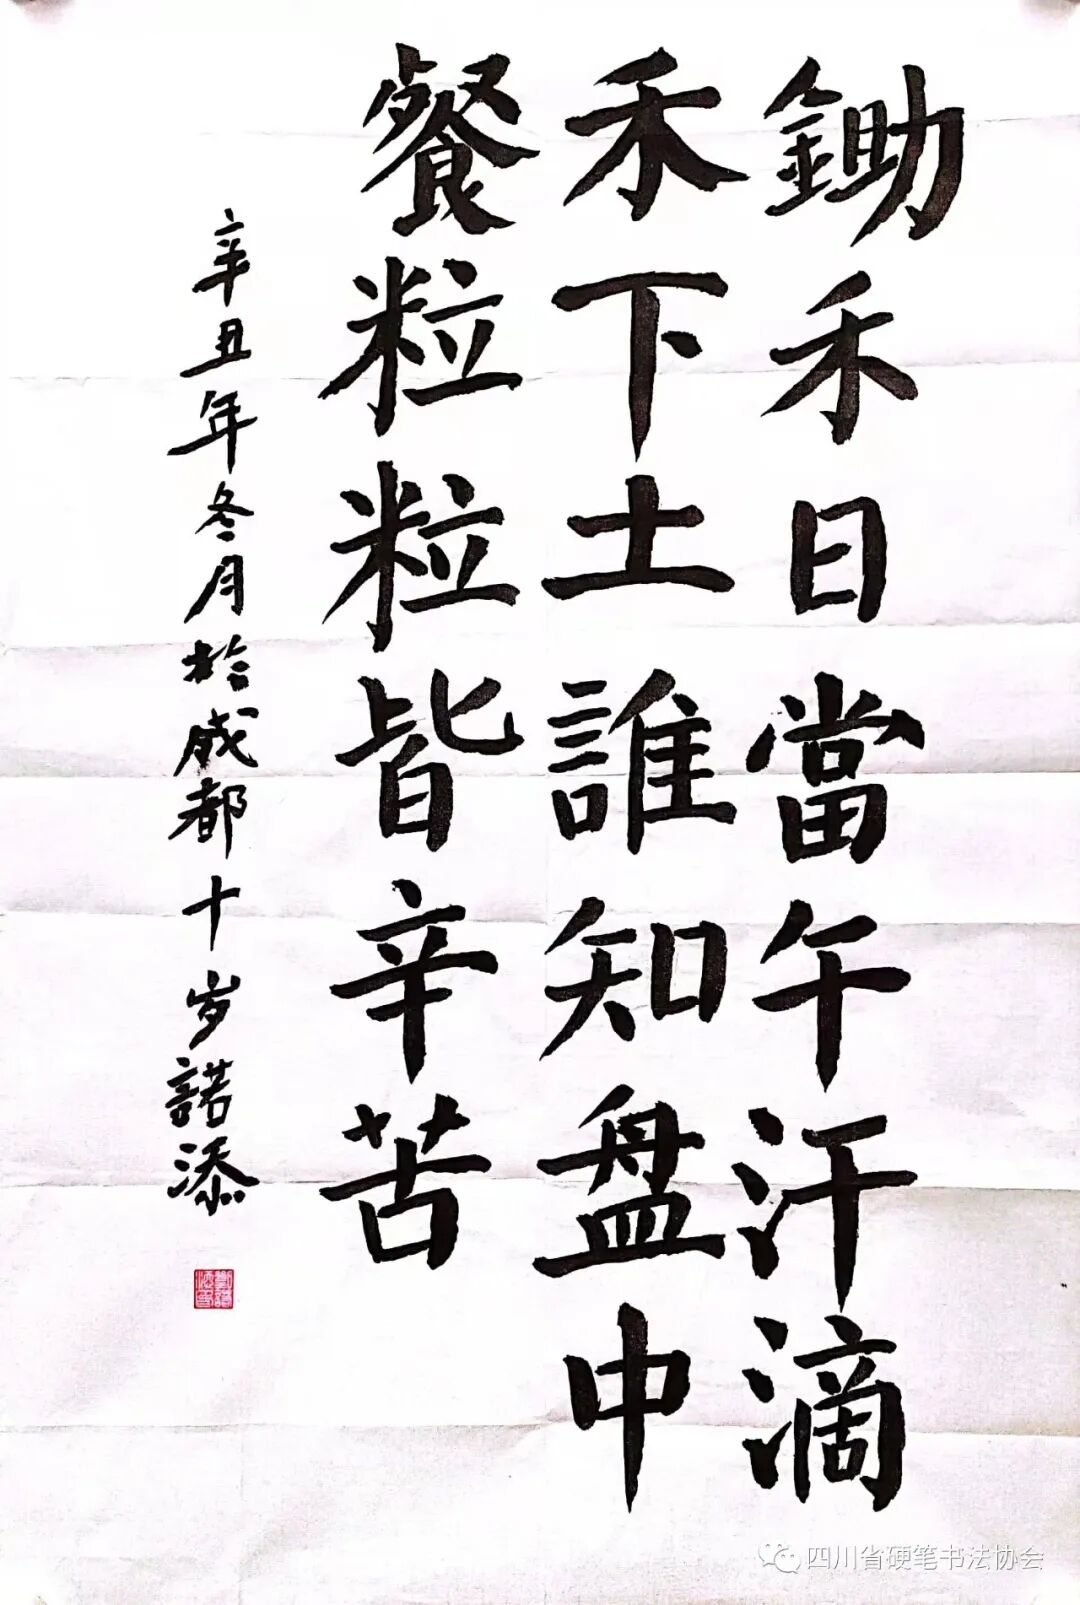 鋤禾日當午汗滴
禾下土誰知盘中
餐粒粒皆辛苦
辛丑年冬月於成都十岁諾添
四川省硬笔书法协会